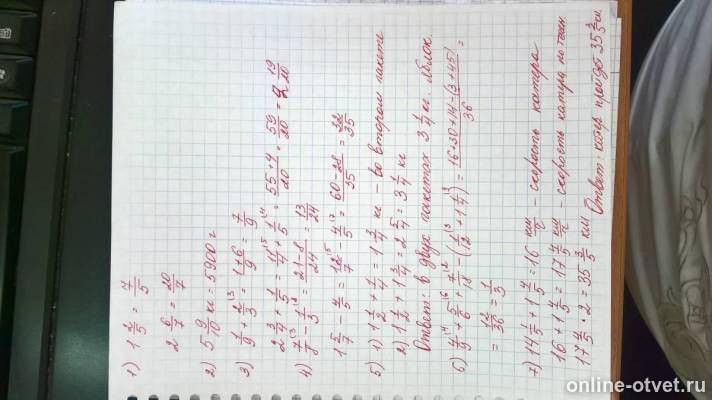 1) 1 2/5 = 7/5
2 6/7 = 20/7
2) 5 9/10 кг = 5900 г
3) 1/9 + 2/3 = 1+6/9 = 7/9
2 3/4 + 1/5 = 11/4 + 1/5 = 55+4/20 = 59/20 = 2 19/20
4) 7/8 - 1/3 = 21-8/24 = 13/24
1 5/7 - 4/5 = 12/7 - 4/5 = 60-28/35 = 32/35
5) 1) 1 1/2 + 1/4 = 1 3/4 кг - во втором пакете
2) 1 1/2 + 1 3/4 = 2 5/4 = 3 1/4 кг
Ответ: в двух пакетах 3 1/4 кг. яблок.
6) 4/9 + 5/6 + 7/18 - (1/12 + 1 1/4) = 16+30+14-(3+45)/36 =
= 12/36 = 1/3
7) 14 4/5 + 1 1/5 = 16 км/ч - скорость катера
16 + 1 4/5 = 17 4/5 км/ч - скорость катера по теч.
17 4/5 · 2 = 35 3/5 км
Ответ: катер пройдёт 35 3/5 км.
online-otvet.ru